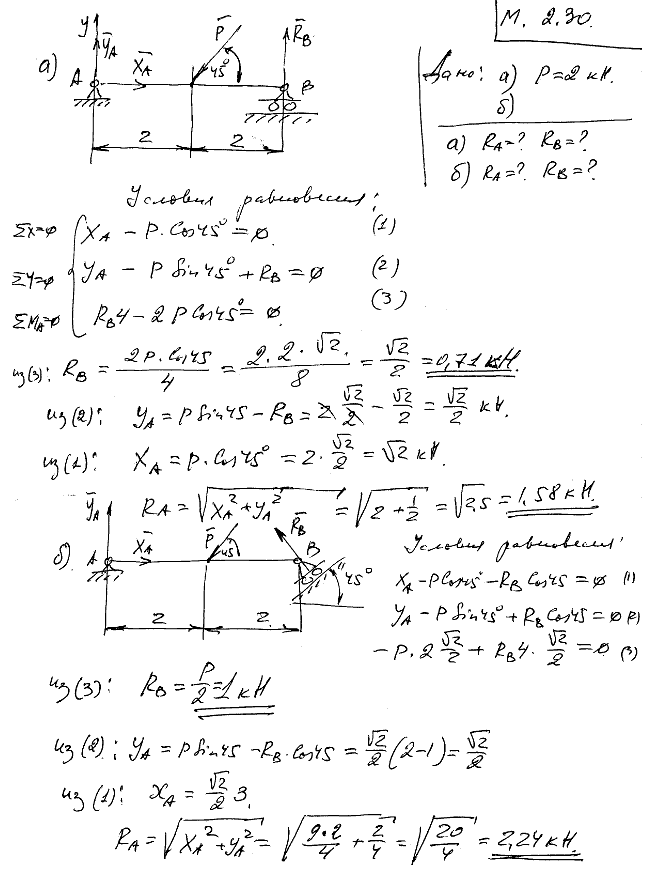 М. 2.30.
y
Y̅A
X̅A
P̅
R̅B
а)
A
45°
B
2
2
Дано: а) P=2 кН.
б)
а) RA=? RB=?
б) RA=? RB=?
Условия равновесия:
ΣX=0 XA – P·Cos45°=0 (1)
ΣY=0 YA – P Sin45° + RB = 0 (2)
ΣMA=0 RB4 – 2 P Cos45° = 0. (3)
из(3): RB = 2P·Cos45/4 = 2·2·√2/8 = √2/2 = 0,71 кН.
из(2): YA = P Sin45 – RB = 2 √2/2 – √2/2 = √2/2 кН.
из(1): XA = P·Cos45° = 2·√2/2 = √2 кН.
RA = √(XA²+YA²) = √(2+1/2) = √2,5 = 1,58 кН.
Y̅A
X̅A
P̅
R̅B
б)
A
45
B
45°
2
2
Условия равновесия:
XA – P Cos45° – RB Cos45 = 0 (1)
YA – P Sin45° + RB Cos45 = 0 (2)
– P·2 √2/2 + RB4·√2/2 = 0 (3)
из(3): RB = P/2 = 1 кН
из(2): YA = P Sin45 – RB·Cos45 = √2/2 (2–1) = √2/2
из(1): XA = √2/2 3.
RA = √(XA²+YA²) = √(9·2/4 + 2/4) = √(20/4) = 2,24 кН.